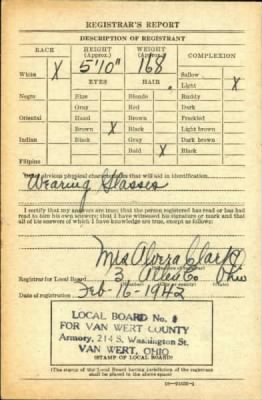 REGISTRAR'S REPORT
DESCRIPTION OF REGISTRANT
RACE HEIGHT (Approx.) WEIGHT (Approx.) COMPLEXION
5'10" 168
White X Sallow
EYES HAIR Light X
Negro Blue Blonde Ruddy
Gray Red Dark
Oriental Hazel Brown Freckled
Brown X Black Light brown
Indian Black Gray Dark brown
Bald X Black
Filipino
obvious physical characteristics that will aid in identification
Wearing Glasses
I certify that my answers are true; that the person registered has read or has had
read to him his own answers; that I have witnessed his signature or mark and that
all of his answers of which I have knowledge are true, except as follows:
Mrs Clark
Registrar for Local Board 3 Allen Co Ohio
Date of registration Feb-16-1942
LOCAL BOARD No. 1
FOR VAN WERT COUNTY
Armory, 214 S. Washington St.
VAN WERT, OHIO
(STAMP OF LOCAL BOARD)
(The stamp of the Local Board having jurisdiction of the registrant
shall be placed in the above space)